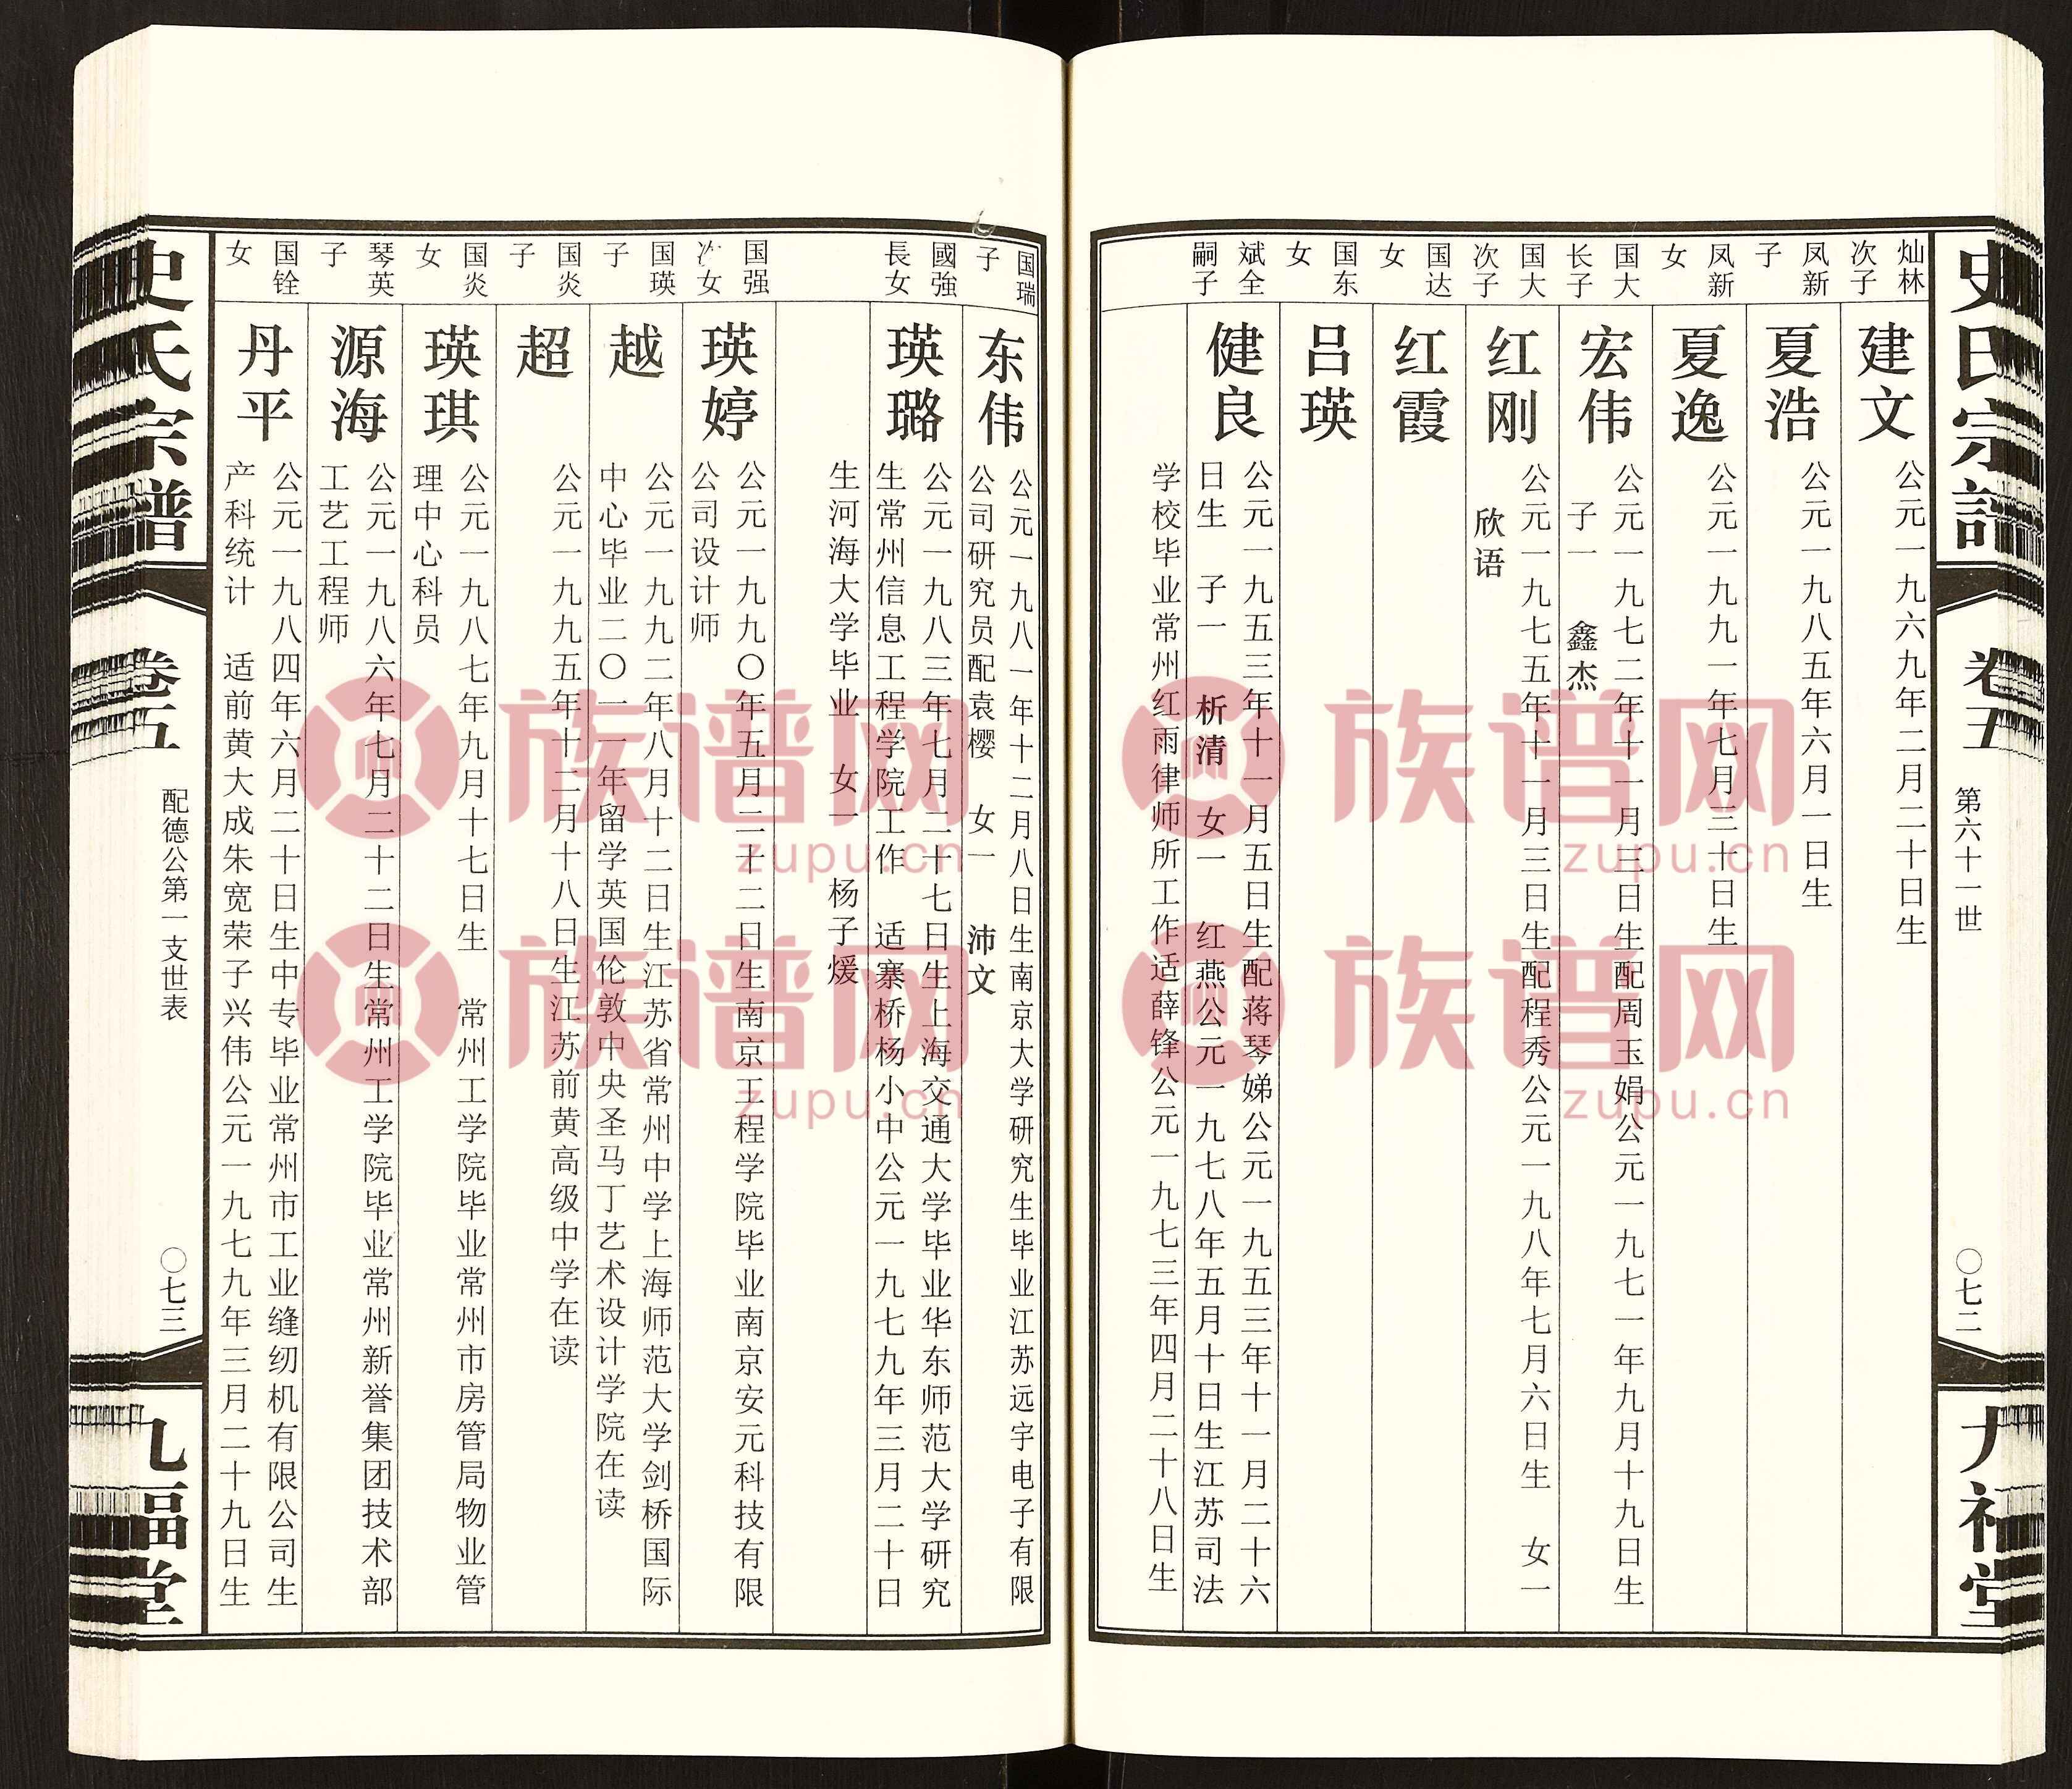 史氏宗譜
卷五
第六十一世
〇七二
九福堂
灿林
次子
建文
公元一九六九年二月二十日生
凤新
子
夏浩
公元一九八五年六月一日生
凤新
女
夏逸
公元一九九一年七月三十日生
国大
长子
宏伟
公元一九七二年十一月三日生配周玉娟公元一九七一年九月十九日生
子一 鑫杰
国大
次子
红刚
公元一九七五年十一月三日生配程秀公元一九八年七月六日生 女一
欣语
国达
女
红霞
国东
女
吕瑛
斌全
嗣子
健良
公元一九五三年十一月五日生配蒋琴娣公元一九五三年十一月二十六
日生 子一 析清 女一 红燕公元一九七八年五月十日生江苏司法
学校毕业常州红雨律师所工作适薛锋公元一九七三年四月二十八日生
国瑞
子
东伟
公元一九八一年十二月八日生南京大学研究生毕业江苏远宇电子有限
公司研究员配袁樱 女一 沛文
國強
長女
瑛璐
公元一九八三年七月二十七日生上海交通大学毕业华东师范大学研究
生常州信息工程学院工作 适寨桥杨小中公元一九七九年三月二十日
生河海大学毕业 女一 杨子煖
国强
次女
瑛婷
公元一九九〇年五月二十二日生南京工程学院毕业南京安元科技有限
公司设计师
国瑛
子
越
公元一九九二年八月十二日生江苏省常州中学上海师范大学剑桥国际
中心毕业二〇一一年留学英国伦敦中央圣马丁艺术设计学院在读
国炎
子
超
公元一九九五年十二月十八日生江苏前黄高级中学在读
国炎
女
瑛琪
公元一九八七年九月十七日生 常州工学院毕业常州市房管局物业管
理中心科员
琴英
子
源海
公元一九八六年七月二十二日生常州工学院毕业常州新誉集团技术部
工艺工程师
国铨
女
丹平
公元一九八四年六月二十日生中专毕业常州市工业缝纫机有限公司生
产科统计 适前黄大成朱宽荣子兴伟公元一九七九年三月二十九日生
史氏宗譜
卷五
配德公第一支世表
〇七三
九福堂
族谱网
zupu.cn
族谱网
zupu.cn
族谱网
zupu.cn
族谱网
zupu.cn